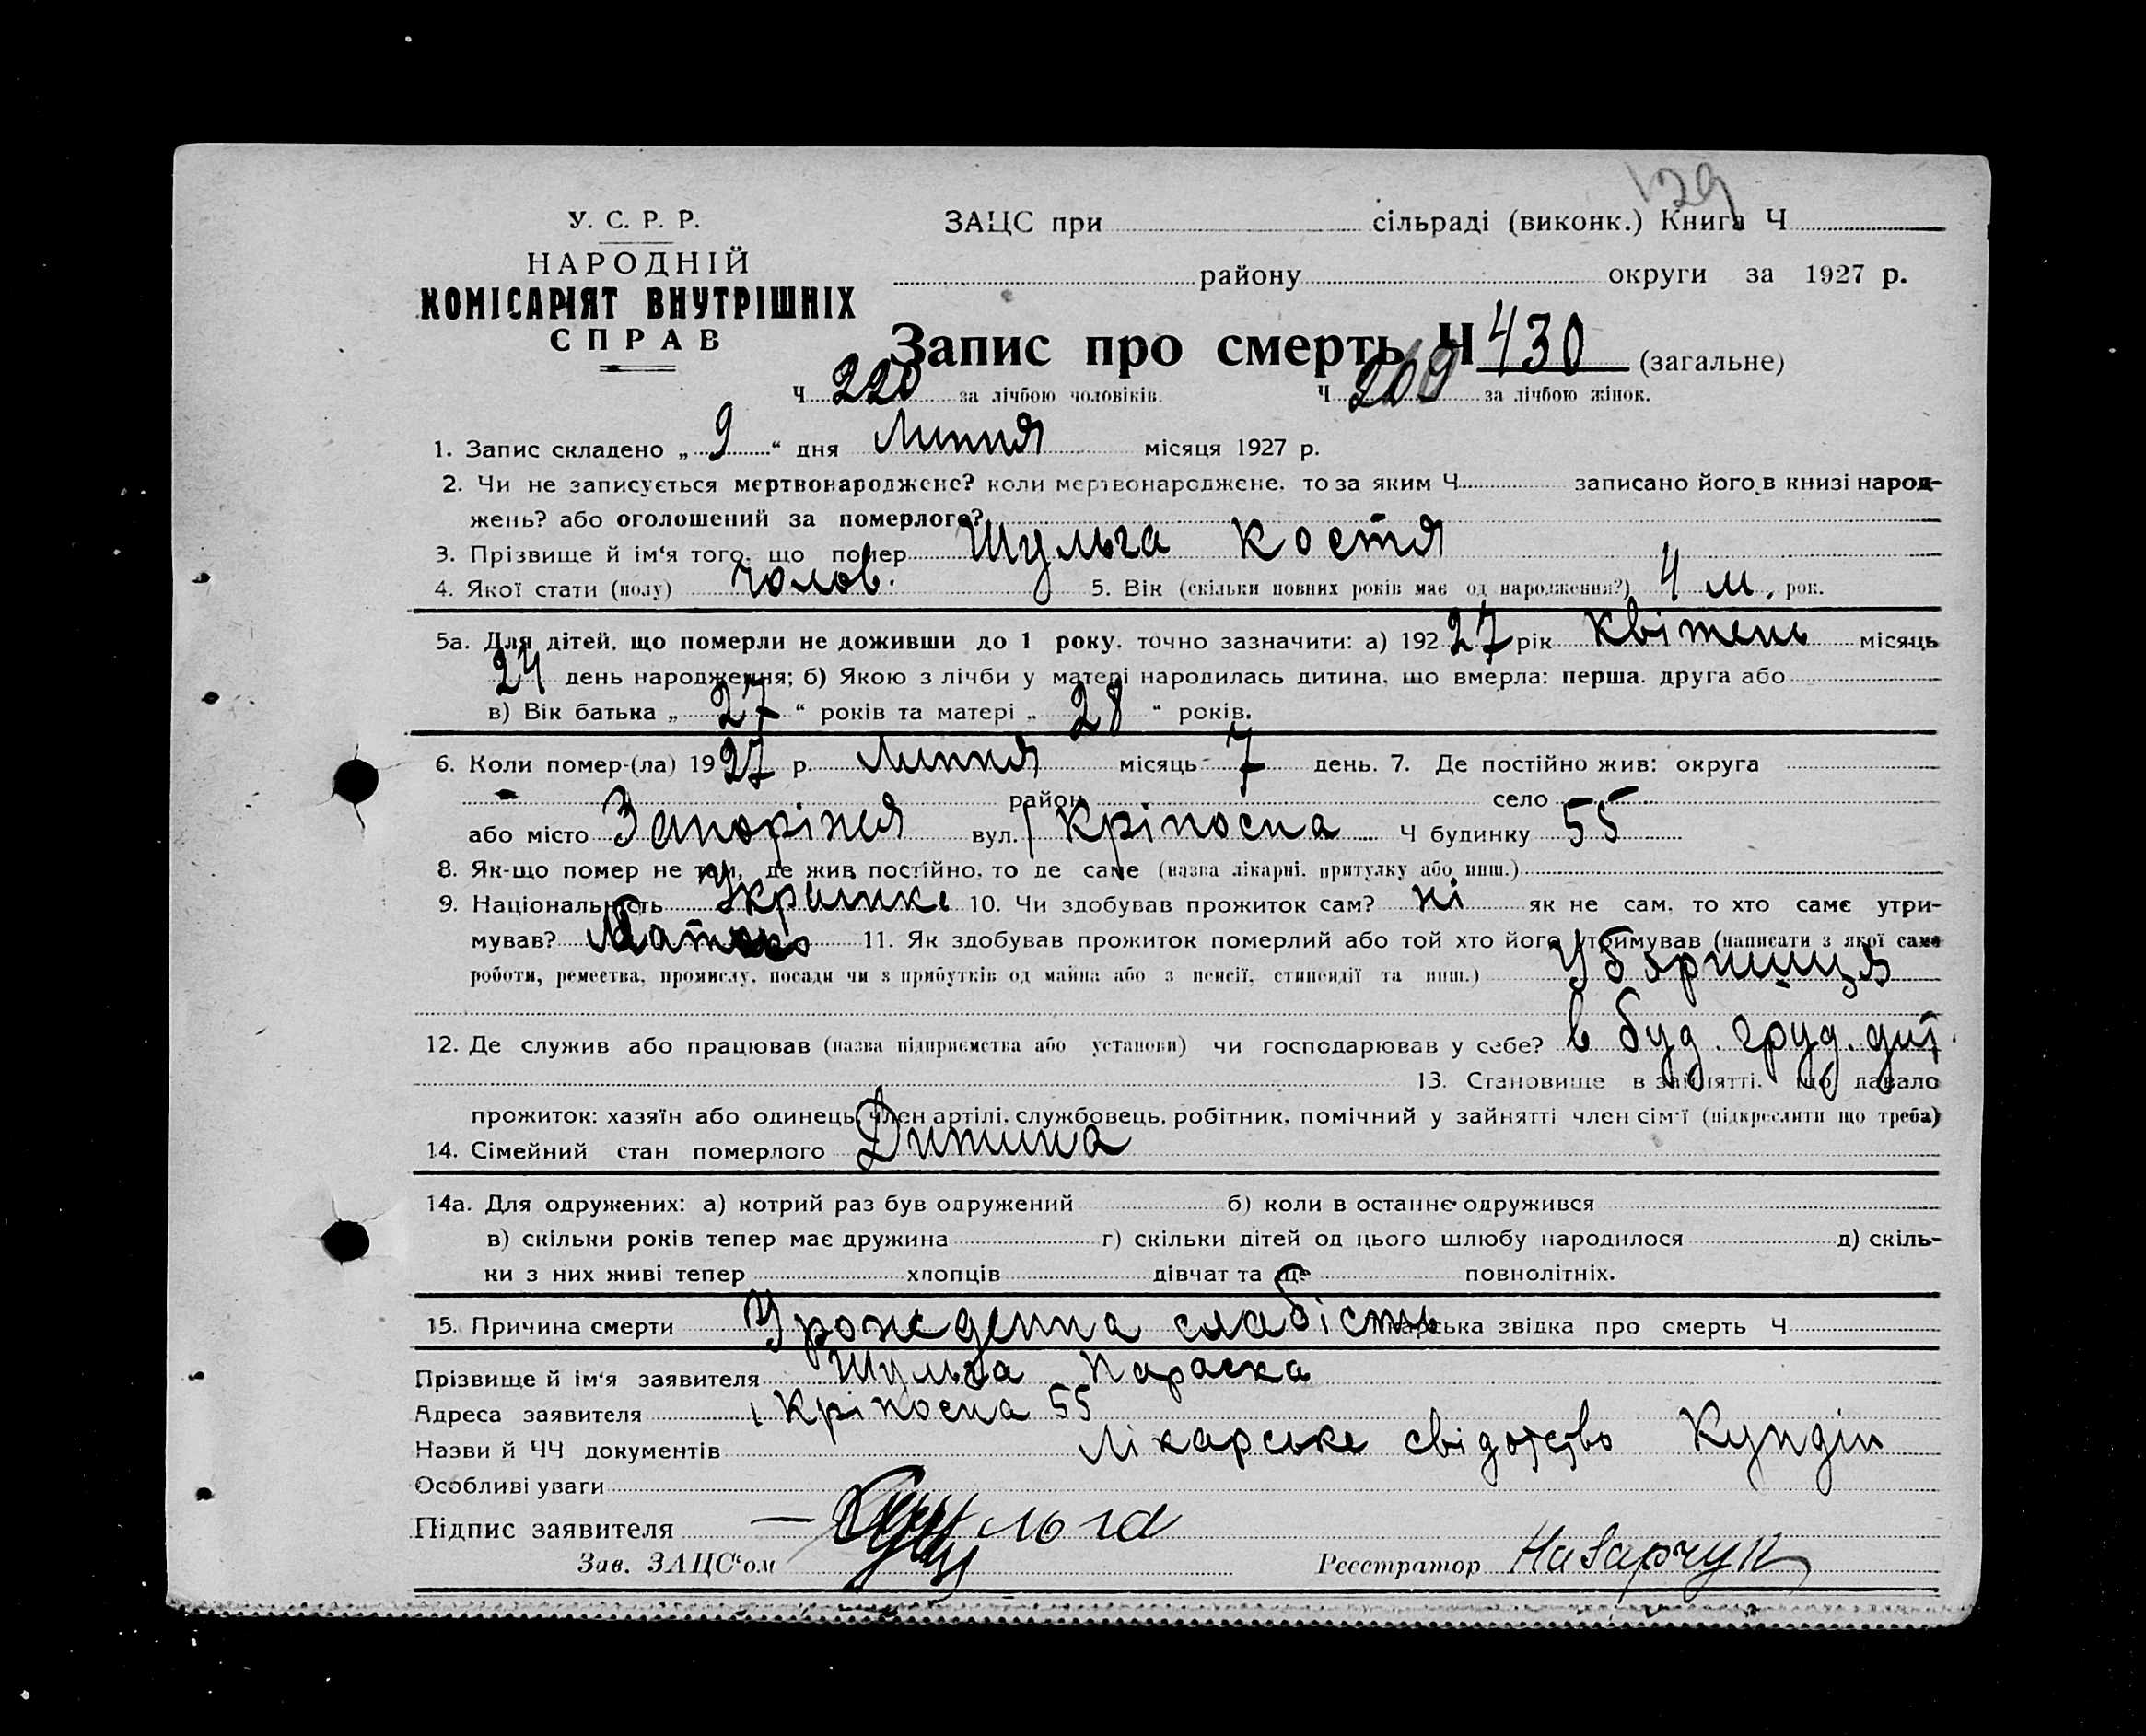 129
У. С. Р. Р.
НАРОДНІЙ
КОМІСАРІЯТ ВНУТРІШНІХ
СПРАВ
ЗАЦС при сільраді (виконк.) Книга Ч
району округи за 1927 р.
Запис про смерть Ч 430 (загальне)
Ч 220 за лічбою чоловіків. Ч 209 за лічбою жінок.
1. Запис складено „ 9 “ дня Липня місяця 1927 р.
2. Чи не записується мертвонароджене? коли мертвонароджене, то за яким Ч записано його в книзі народ-
жень? або оголошений за померлого?
3. Прізвище й ім‘я того, що помер Шульга Костя
4. Якої стати (полу) чолов. 5. Вік (скільки повних років має од народження?) 4 м. рок.
5а. Для дітей, що померли не доживши до 1 року, точно зазначити: а) 192 27 рік квітень місяць
24 день народження; б) Якою з лічби у матері народилась дитина, що вмерла: перша, друга або
в) Вік батька „ 27 “ років та матері „ 28 “ років.
6. Коли помер-(ла) 19 27 р. Липня місяць 7 день. 7. Де постійно жив: округа
район село
або місто Запоріжжя вул. Кріпосна Ч будинку 55
8. Як-що помер не там, де жив постійно, то де саме (назва лікарні, притулку або инш.)
9. Національність 10. Чи здобував прожиток сам? ні як не сам, то хто саме утри-
мував? 11. Як здобував прожиток померлий або той хто його утримував (написати з якої саме
роботи, ремества, промислу, посади чи з прибутків од майна або з пенсії, стипендії та инш.) Уборниця
12. Де служив або працював (назва підприємства або установи) чи господарював у себе? в буд. груд. дит.
13. Становище в зайнятті, що давало
прожиток: хазяїн або одинець, член артілі, службовець, робітник, помічний у зайнятті член сім‘ї (підкреслити що треба)
14. Сімейний стан померлого Дитина
14а. Для одружених: а) котрий раз був одружений б) коли в останнє одружився
в) скільки років тепер має дружина г) скільки дітей од цього шлюбу народилося д) скіль-
ки з них живі тепер хлопців дівчат та ще повнолітніх.
15. Причина смерти Урожденна слабість Лікарська звідка про смерть Ч
Прізвище й ім‘я заявителя Шульга Параска
Адреса заявителя Кріпосна 55
Назви й ЧЧ документів Лікарське свідотство Кундін
Особливі уваги
Підпис заявителя Шульга
Зав. ЗАЦС‘ом Реєстратор Назарчук